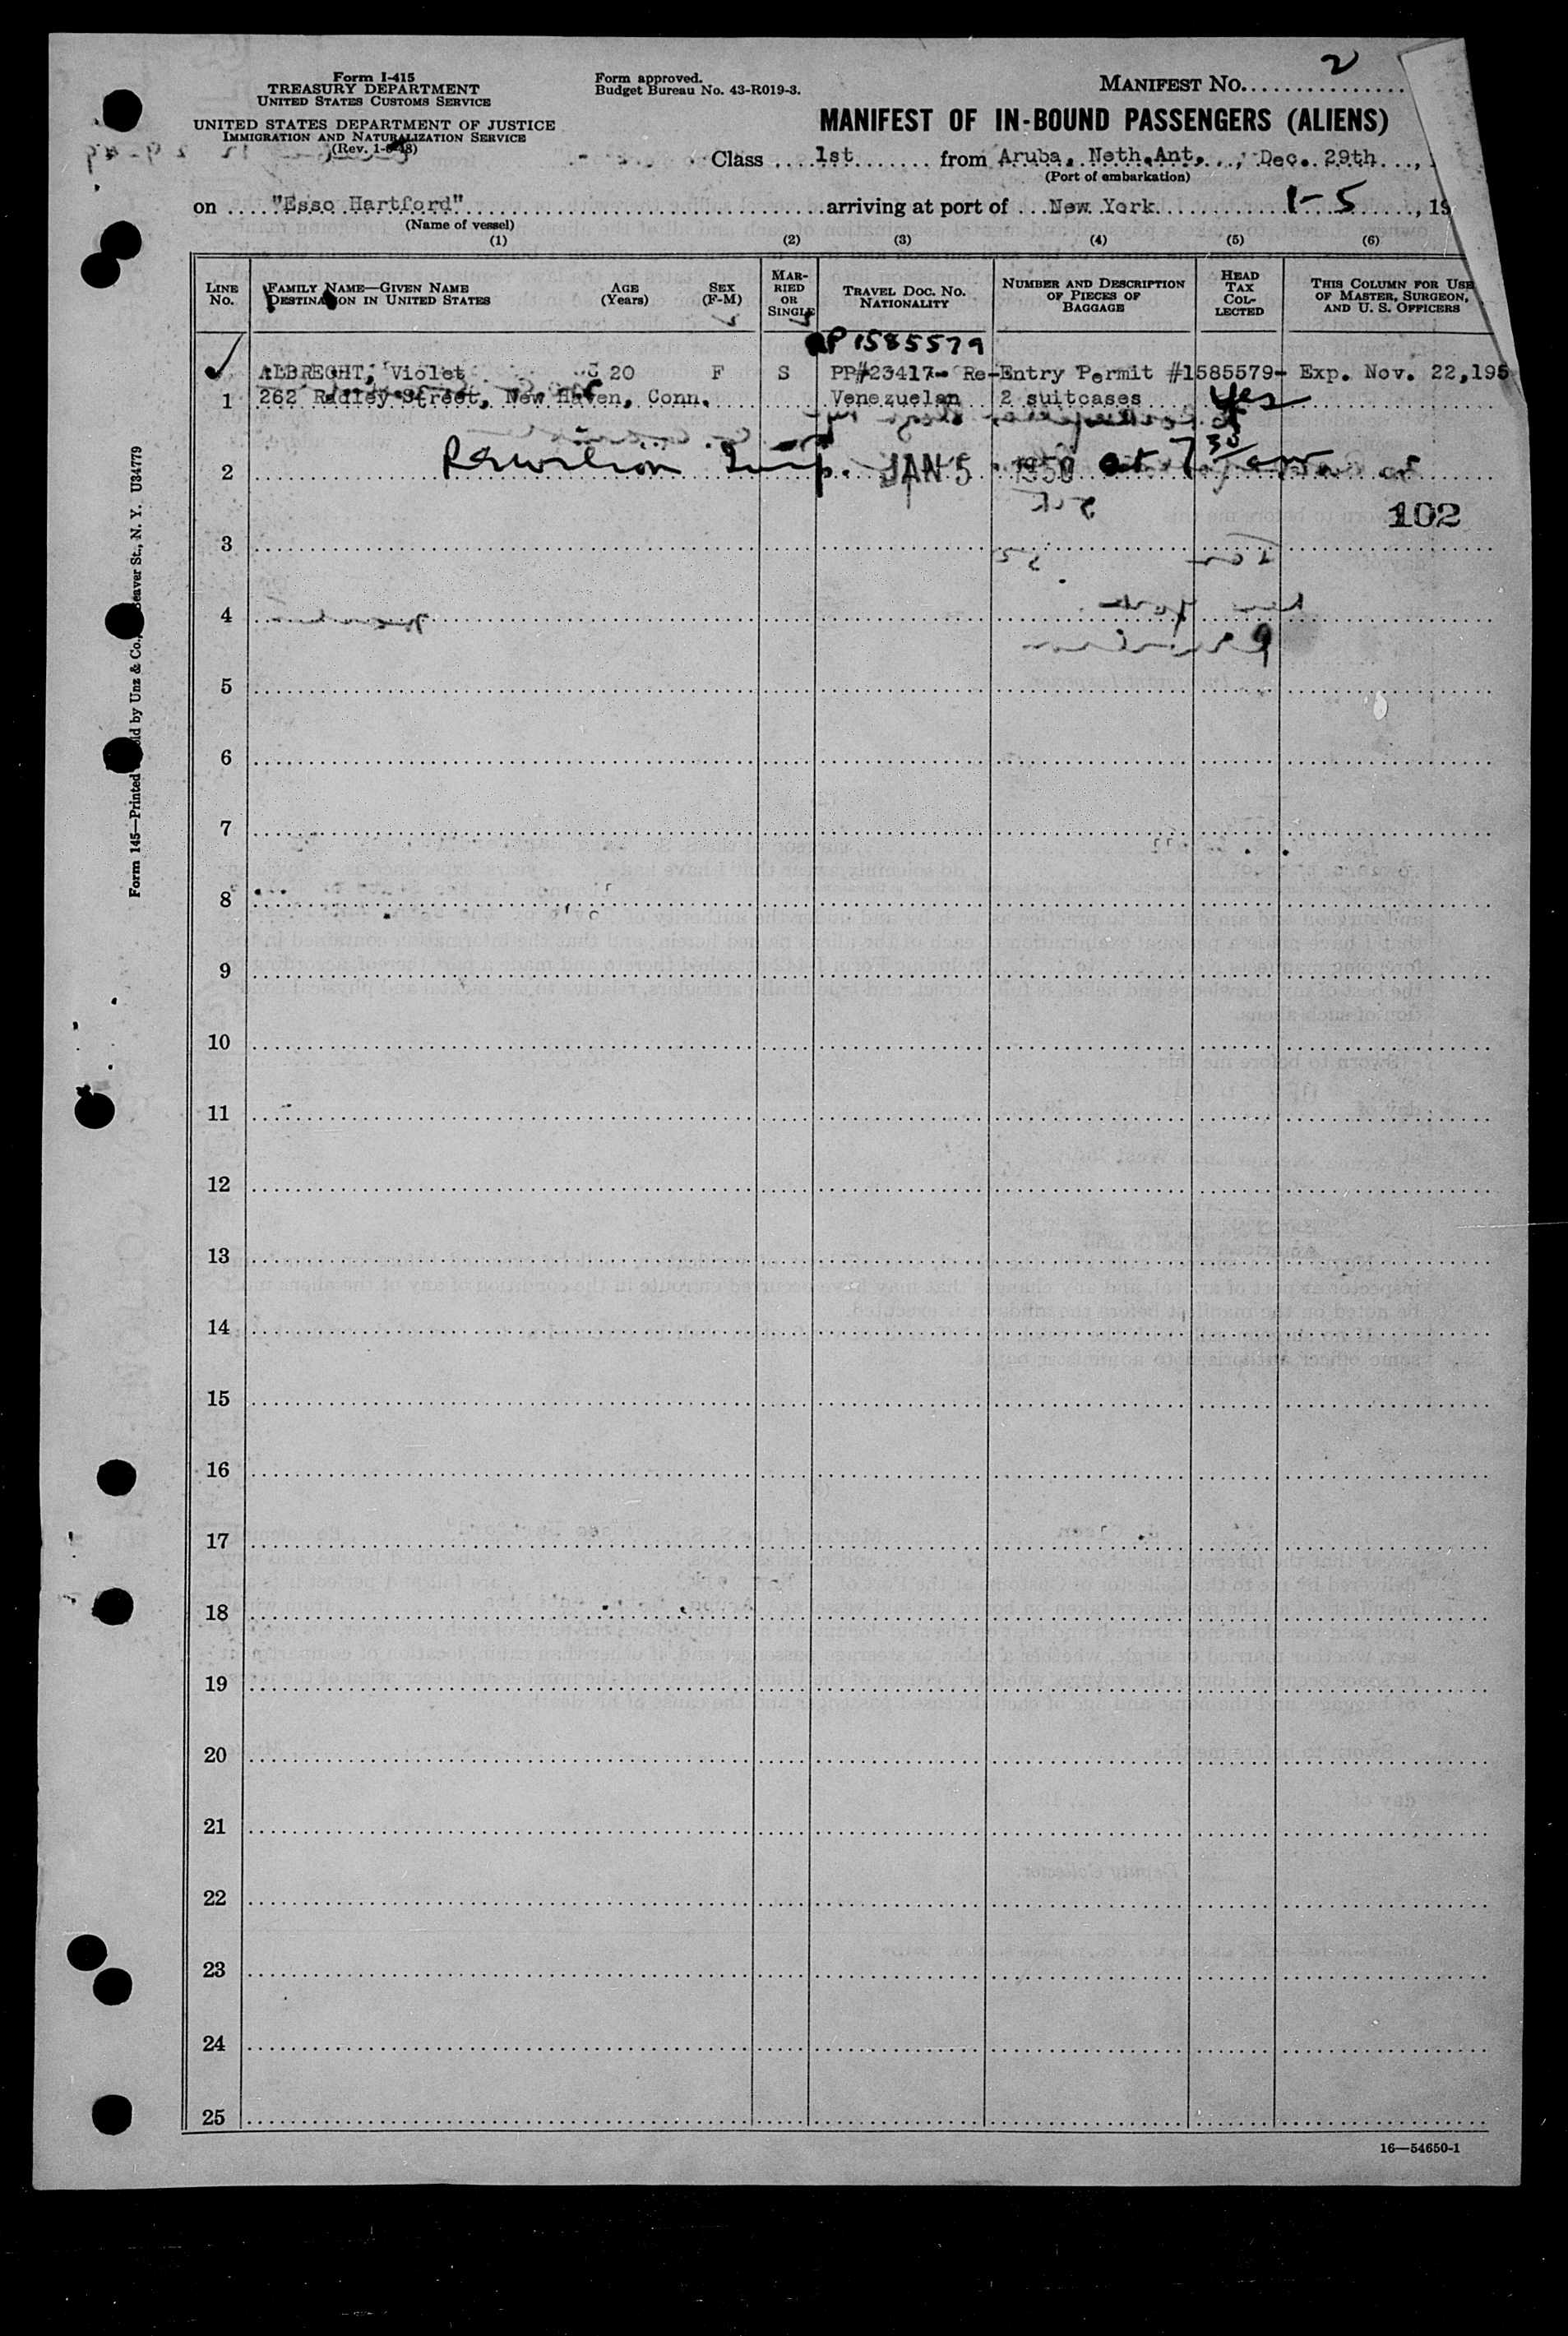 Form I-415
TREASURY DEPARTMENT
UNITED STATES CUSTOMS SERVICE
UNITED STATES DEPARTMENT OF JUSTICE
IMMIGRATION AND NATURALIZATION SERVICE
Form approved.
Budget Bureau No. 43-R019-3.
MANIFEST NO. 2
MANIFEST OF IN-BOUND PASSENGERS (ALIENS)
Class 1st from Aruba, Neth.Ant., Dec. 29th,
(Port of embarkation)
on "Esso Hartford" arriving at port of New York 1-5, 19
(Name of vessel)
(1) (2) (3) (4) (5) (6)
LINE No.
FAMILY NAME—GIVEN NAME
DESTINATION IN UNITED STATES
AGE (Years)
SEX (F-M)
MARRIED OR SINGLE
TRAVEL DOC. NO.
NATIONALITY
NUMBER AND DESCRIPTION OF PIECES OF BAGGAGE
HEAD TAX COLLECTED
THIS COLUMN FOR USE OF MASTER, SURGEON, AND U. S. OFFICERS
RP 1585579
ALBRECHT, Violet 20 F S PP#23417- Re-Entry Permit #1585579- Exp. Nov. 22,195
1 262 Radley Street, New Haven, Conn. Venezuelan 2 suitcases Yes
2 JAN 5 1950 at 7 30
102
3
4
5
6
7
8
9
10
11
12
13
14
15
16
17
18
19
20
21
22
23
24
25
16—54650-1
Form 145—Printed
ld by Unz & Co.
eaver St., N. Y. U34779